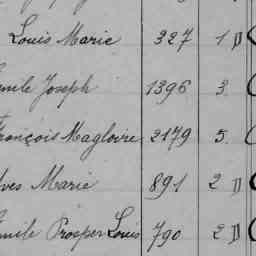 Louis Marie 327 1 D
mile Joseph 1396 3
rançois Magloire 2179 5.
ves Marie 891 2 D
mile Prosper Louis 790 2 D